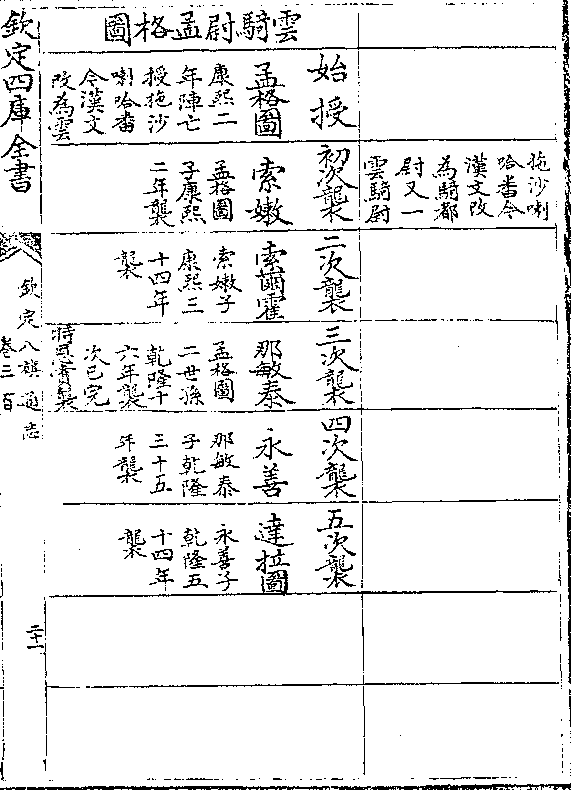 拖沙喇
哈番今
漢文改
為騎都
尉又一
雲騎尉
雲騎尉孟格圖
始授
孟格圖
康熙二
年陣亡
授拖沙
喇哈番
今漢文
改為雲
初次襲
索嫩
孟格圖
子康熙
二年襲
二次襲
索爾霍
索嫩子
康熙三
十四年
襲
三次襲
那敏泰
孟格圖
二世孫
乾隆十
六年襲
次已完
特恩賞襲
四次襲
永善
那敏泰
子乾隆
三十五
年襲
五次襲
達拉圖
永善子
乾隆五
十四年
襲
欽定四庫全書
欽定八旗通志
卷三百
二十一